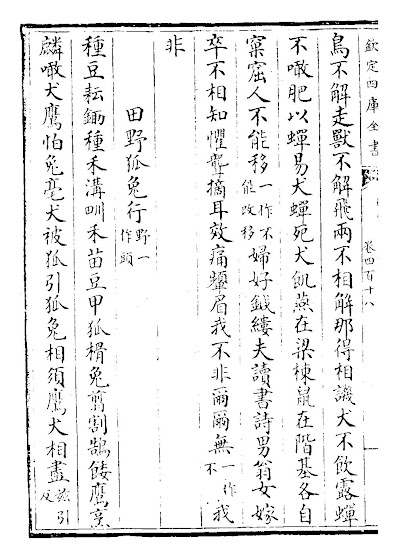 欽定四庫全書
卷四百十八
鳥不解走獸不解飛兩不相解那得相譏犬不飲露蟬
不噉肥以蟬易犬蟬死犬飢燕在梁棟鼠在階基各自
窠窟人不能移一作不能改移婦好鍼縷夫讀書詩男翁女嫁
卒不相知懼聾摘耳效痛顰眉我不非爾爾無一作不我
非
田野狐兔行野一作頭
種豆耘鋤種禾溝甽禾苗豆甲狐榾兔翦割鵠餧鷹烹
麟噉犬鷹怕兔毫犬被狐引狐兔相須鷹犬相盡茲引反